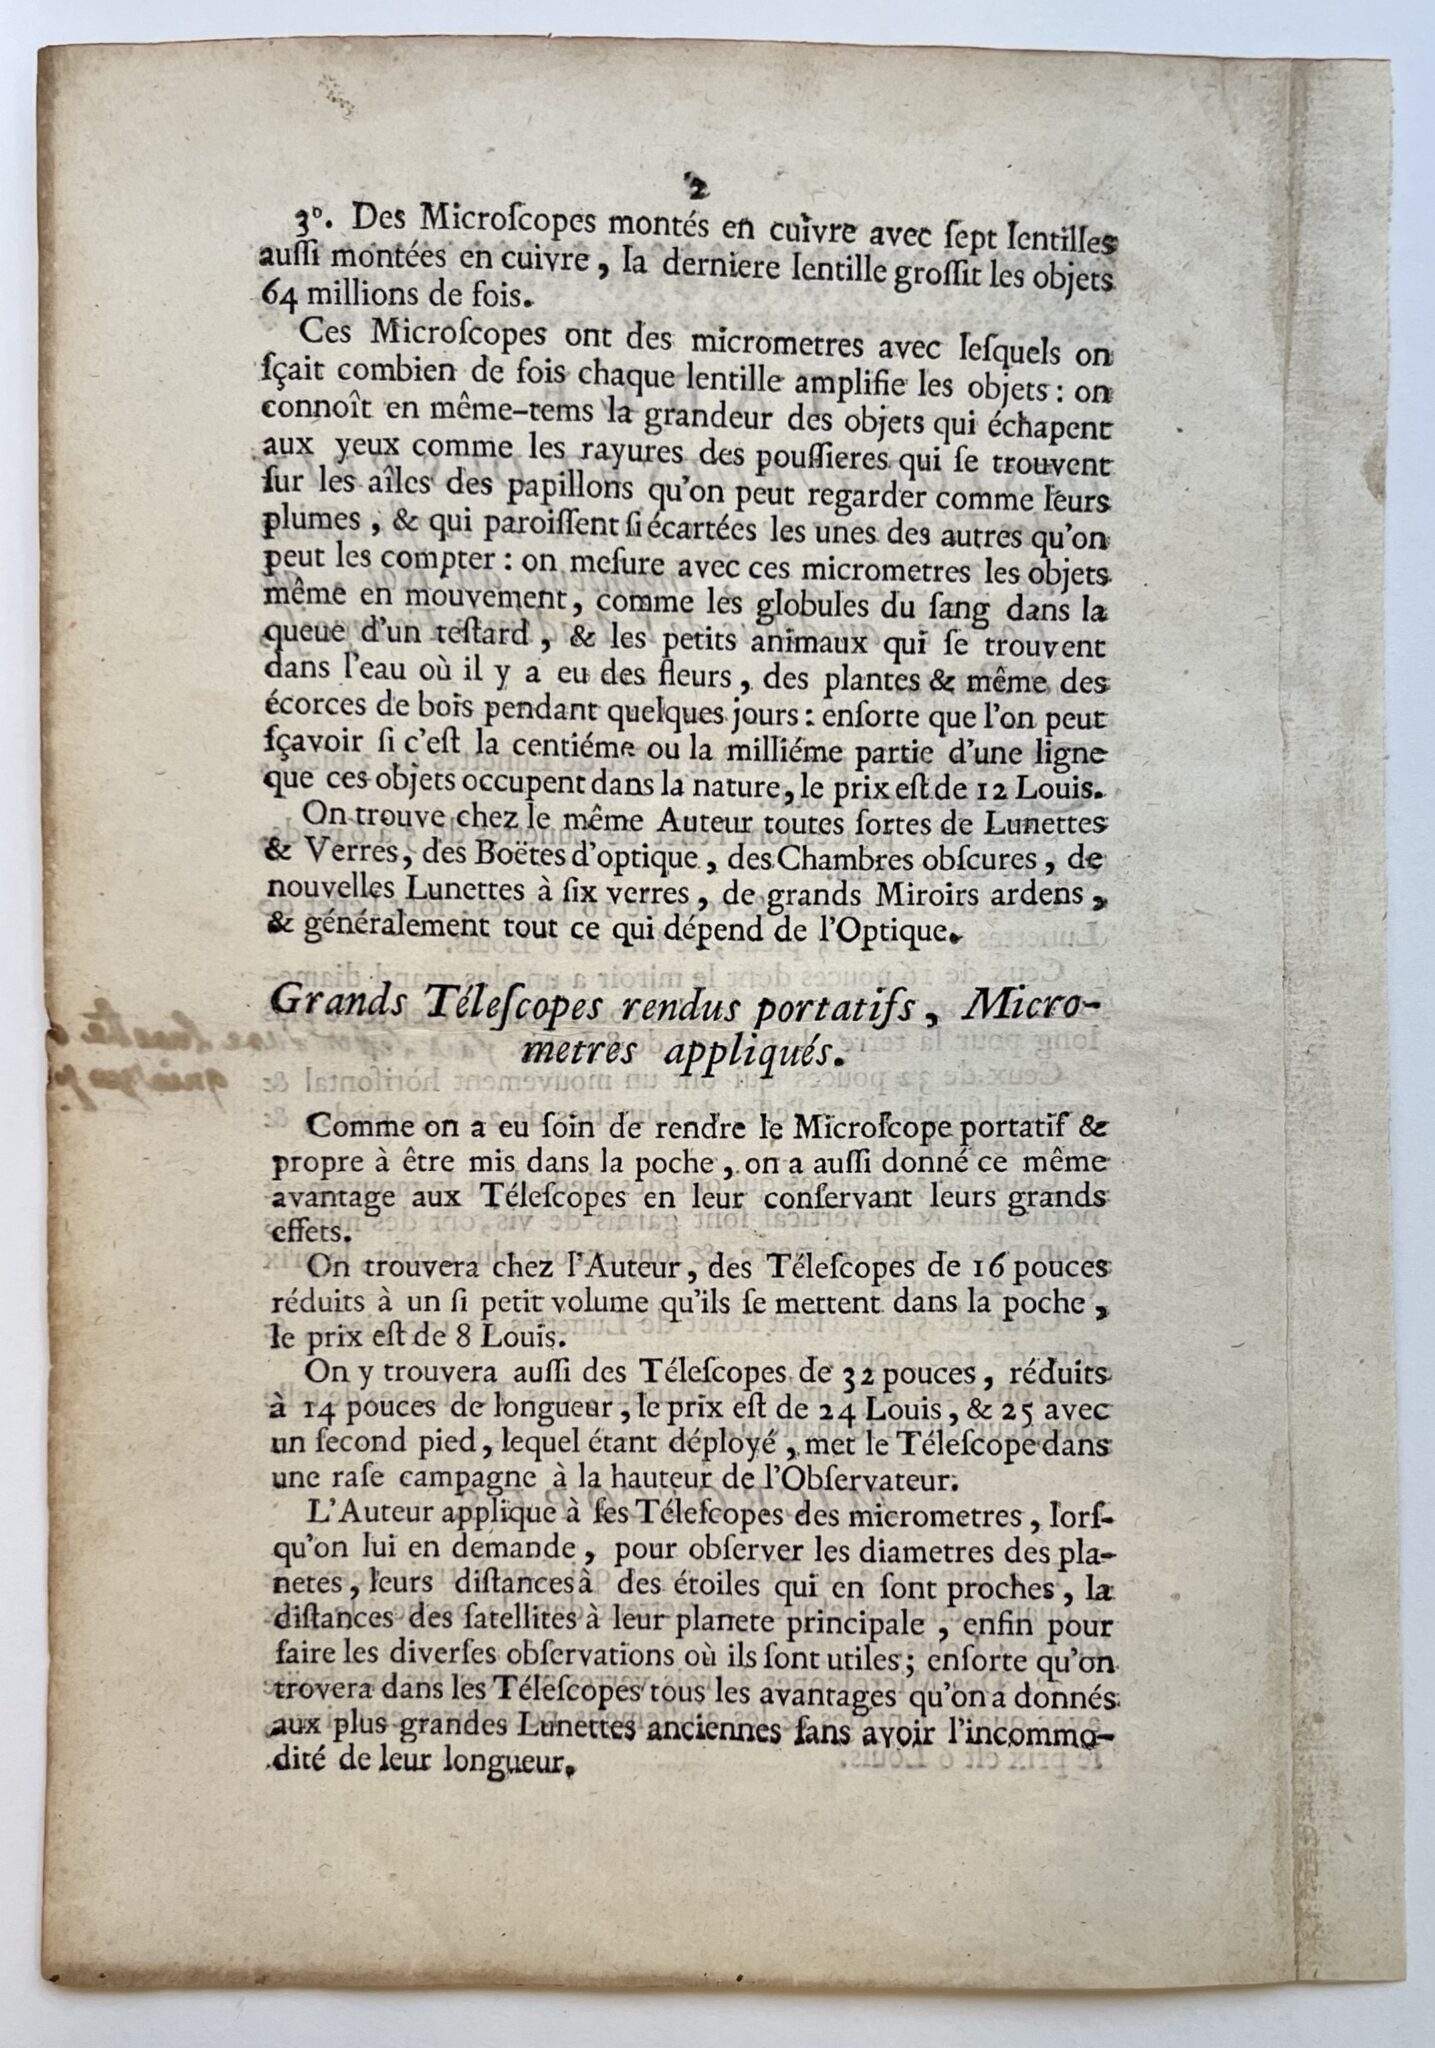 2
3°. Des Microſcopes montés en cuivre avec ſept lentilles
auſſi montées en cuivre, la derniere lentille groſſit les objets
64 millions de fois.
Ces Microſcopes ont des micrometres avec leſquels on
ſçait combien de fois chaque lentille amplifie les objets : on
connoît en même-tems la grandeur des objets qui échapent
aux yeux comme les rayures des pouſſieres qui ſe trouvent
ſur les aîles des papillons qu'on peut regarder comme leurs
plumes, & qui paroiſſent ſi écartées les unes des autres qu'on
peut les compter : on meſure avec ces micrometres les objets
même en mouvement, comme les globules du ſang dans la
queue d'un teſtard, & les petits animaux qui ſe trouvent
dans l'eau où il y a eu des fleurs, des plantes & même des
écorces de bois pendant quelques jours : enſorte que l'on peut
ſçavoir ſi c'eſt la centiéme ou la milliéme partie d'une ligne
que ces objets occupent dans la nature, le prix eſt de 12 Louis.
On trouve chez le même Auteur toutes ſortes de Lunettes
& Verres, des Boëtes d'optique, des Chambres obſcures, de
nouvelles Lunettes à ſix verres, de grands Miroirs ardens,
& généralement tout ce qui dépend de l'Optique.
Grands Téleſcopes rendus portatifs, Micro-
metres appliqués.
Comme on a eu ſoin de rendre le Microſcope portatif &
propre à être mis dans la poche, on a auſſi donné ce même
avantage aux Téleſcopes en leur conſervant leurs grands
effets.
On trouvera chez l'Auteur, des Téleſcopes de 16 pouces
réduits à un ſi petit volume qu'ils ſe mettent dans la poche,
le prix eſt de 8 Louis.
On y trouvera auſſi des Téleſcopes de 32 pouces, réduits
à 14 pouces de longueur, le prix eſt de 24 Louis, & 25 avec
un ſecond pied, lequel étant déployé, met le Téleſcope dans
une raſe campagne à la hauteur de l'Obſervateur.
L'Auteur applique à ſes Téleſcopes des micrometres, lorſ-
qu'on lui en demande, pour obſerver les diametres des pla-
netes, leurs diſtances à des étoiles qui en ſont proches, la
diſtances des ſatellites à leur planete principale, enfin pour
faire les diverſes obſervations où ils ſont utiles; enſorte qu'on
trovera dans les Téleſcopes tous les avantages qu'on a donnés
aux plus grandes Lunettes anciennes ſans avoir l'incommo-
dité de leur longueur.